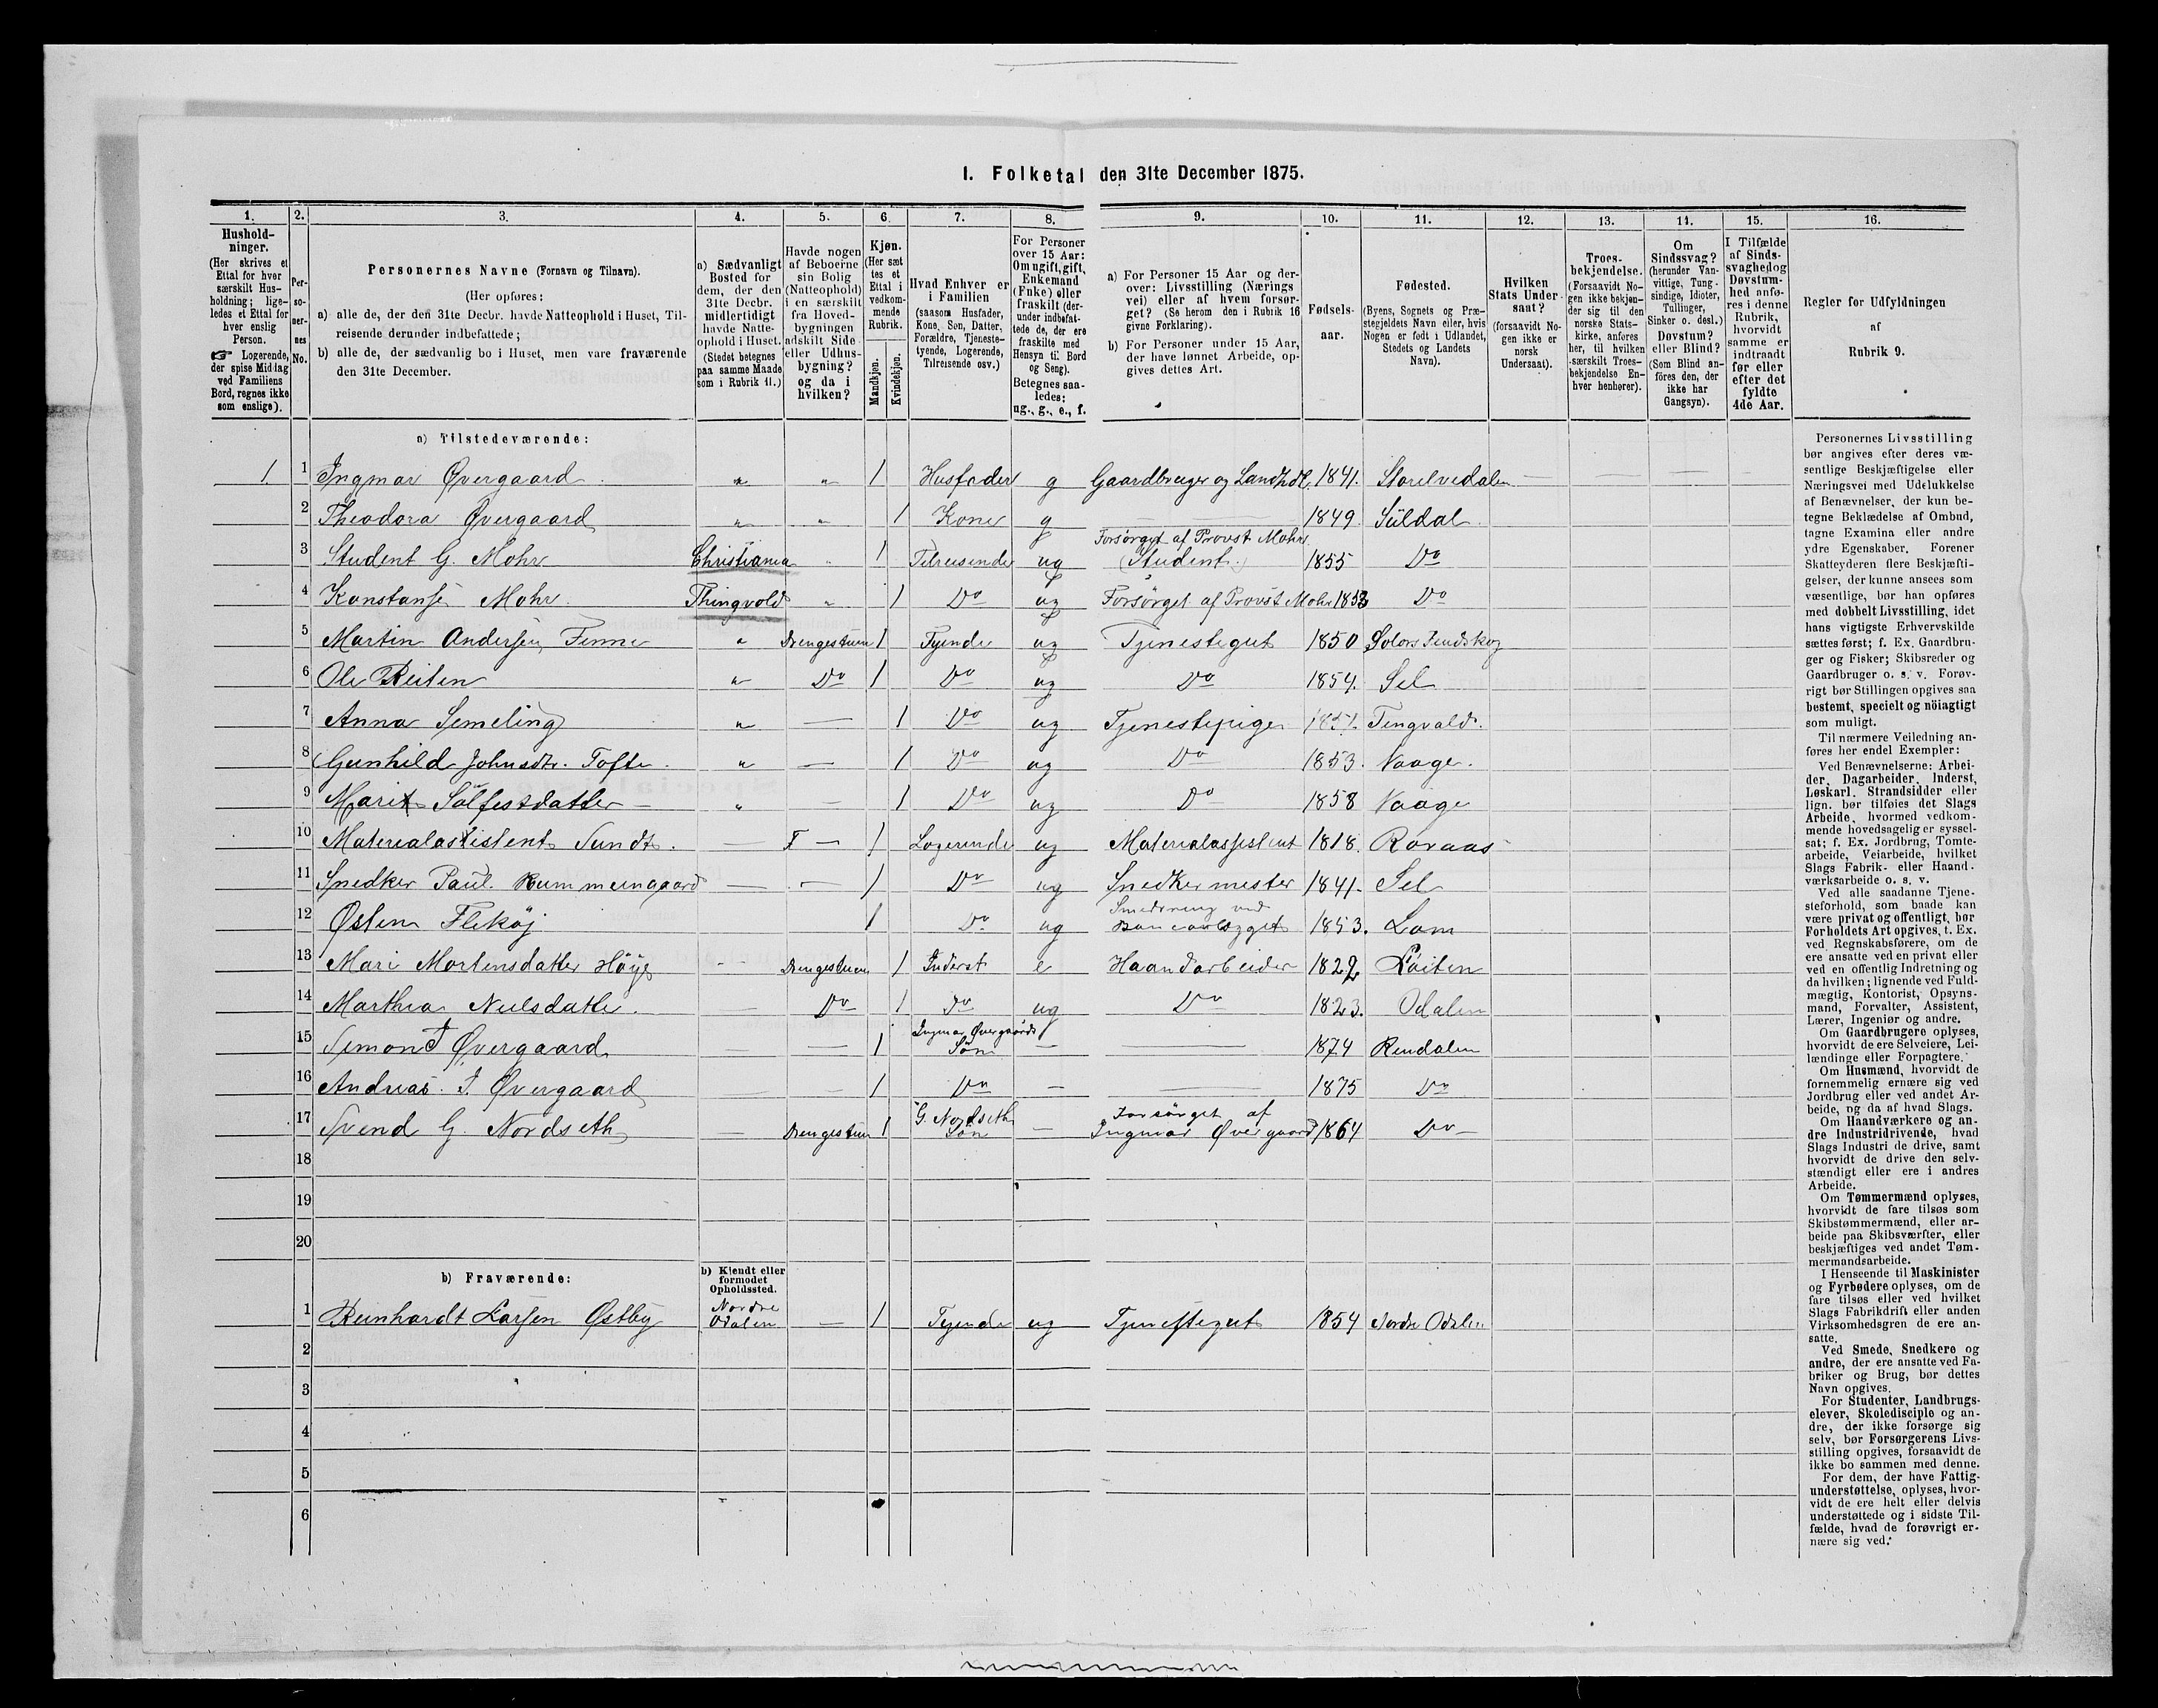 1. Folketal den 31te December 1875.
1. 2. 3. 4. 5. 6. 7. 8. 9. 10. 11. 12. 13. 14. 15. 16.
Hushold-
ninger.
(Her skrives et
Ettal for hver
særskilt Hus-
holdning; lige-
ledes et Ettal for
hver enslig
Person.
☞ Logerende,
der spise Middag
ved Familiens
Bord, regnes ikke
som enslige).
Per-
so-
ner-
nes
No.
Personernes Navne (Fornavn og Tilnavn).
(Her opføres:
a) alle de, der den 31te Decbr. havde Natteophold i Huset, Til-
reisende derunder indbefattede;
b) alle de, der sædvanlig bo i Huset, men vare fraværende
den 31te December.
a) Sædvanligt
Bosted for
dem, der den
31te Decbr.
midlertidigt
havde Natte-
ophold i Huset.
(Stedet betegnes
paa samme Maade
som i Rubrik 11.)
Havde nogen
af Beboerne
sin Bolig
(Natteophold)
i en særskilt
fra Hoved-
bygningen
adskilt Side-
eller Udhus-
bygning?
og da i
hvilken?
Kjøn.
(Her sæt
tes et
Ettal i
vedkom-
mende
Rubrik.
Mandkjøn.
Kvindekjøn.
Hvad Enhver er
i Familien
(saasom Husfader,
Kone, Søn, Datter,
Forældre, Tjeneste-
tyende, Logerende,
Tilreisende osv.)
For Personer
over 15 Aar:
Om ugift, gift,
Enkemand
(Enke) eller
fraskilt (der-
under indbefat-
tede de, der ere
fraskilte med
Hensyn til Bord
og Seng).
Betegnes saa-
ledes:
ug., g., e., f.
a) For Personer 15 Aar og der-
over: Livsstilling (Nærings
vei) eller af hvem forsør-
get? (Se herom den i Rubrik 16
givne Forklaring).
b) For Personer under 15 Aar,
der have lønnet Arbeide, op-
gives dettes Art.
Fødsels-
aar.
Fødested.
(Byens, Sognets og Præ-
stegjeldets Navn eller, hvis
Nogen er født i Udlandet,
Stedets og Landets
Navn).
Hvilken
Stats Under-
saat?
(forsaavidt No-
gen ikke er
norsk
Undersaat).
Troes-
bekjendelse.
(Forsaavidt No-
gen ikke bekjen-
der sig til den
norske Stats-
kirke, anføres
her, til hvilken
særskilt Troes-
bekjendelse En-
hver henhører).
Om
Sindssvag?
(herunder Van-
vittige, Tung-
sindige, Idioter,
Tullinger,
Sinker o. desl.)
Døvstum?
eller Blind?
(Som Blind an-
føres den, der
ikke har
Gangsyn).
I Tilfælde
af Sinds-
svaghed og
Døvstum-
hed anfø-
res i denne
Rubrik,
hvorvidt
samme er
indtraadt
før eller
efter det
fyldte
4de Aar.
Regler for Udfyldningen
af
Rubrik 9.
a) Tilstedeværende:
1. 1 Ingmar Øvergaard " " 1 Husfader g Gaardbruger og Landhdl. 1841. Storelvedalen
2 Theodora Øvergaard " " 1 Kone g 1849 Süldal
Forsørget af Provst Mohr
3 Student G. Mohr Christiania " 1 Tilreisende ug (Student.) 1855 Do
4 Konstanse Mohr Thingvold " 1 Do ug Forsørget af Provst Mohr 1853 Do
5 Martin Andersen Finne " Drengestuen 1 Tyende ug Tjenestegut 1850 Solørs Findskog
6 Ole Reiten " Do 1 Do ug Do 1854. Sel
7 Anna Semeling " 1 Do ug Tjenestepige 1851. Tingvold.
8 Gunhild Johnsdtr. Tofte " 1 Do ug Do 1853. Vaage.
9 Marit Solfestdatter " 1 Do ug Do 1858 Vaage
10 Materialassistent Sundt. F 1 Logerende ug Materialassistent 1818. Roraas
11 Snedker Paul Rummungaard 1 Do ug Snedkermester 1841. Sel
12 Østen Flekøj 1 Do ug 1853. Lom
13 Mari Mortensdatter Höye Drengestuen 1 Inderst e Haandarbeider 1822 Löiten
14 Marthea Neelsdatter. Do 1 Do ug Do 1823. Odalen
Ingmar Øvergaards
15 Simon I Øvergaard 1 Søn 1874 Rendalen
16 Andreas. I. Øvergaard 1 Do 1875 Do
G. Nordseth Forsørget af
17 Svend G. Nordseth Drengestuen 1 Søn Ingmar Øvergaard 1864 Do
18
19
20
b) Fraværende:
b) Kjendt eller
formodet
Opholdssted.
1 Reinhardt Larsen Østby Nordre Odalen 1 Tyende ug Tjenestegut 1854 Nordre Odalen
2
3
4
5
6
Personernes Livsstilling
bør angives efter deres væ-
sentlige Beskjæftigelse eller
Næringsvei med Udelukkelse
af Benævnelser, der kun be-
tegne Beklædelse af Ombud,
tagne Examina eller andre
ydre Egenskaber. Forener
Skatteyderen flere Beskjæfti-
gelser, der kunne ansees som
væsentlige, bør han opføres
med dobbelt Livsstilling, idet
hans vigtigste Erhvervskilde
sættes først; f. Ex. Gaardbru-
ger og Fisker; Skibsreder og
Gaardbruger o. s. v. Forøv-
rigt bør Stillingen opgives saa
bestemt, specielt og nöiagtigt
som muligt.
Til nærmere Veiledning an-
føres her endel Exempler:
Ved Benævnelserne: Arbei-
der, Dagarbeider, Inderst,
Løskarl, Strandsidder eller
lign. bør tilføies det Slags
Arbeide, hvormed vedkom-
mende hovedsagelig er syssel-
sat; f. Ex. Jordbrug, Tomte-
arbeide, Veiarbeide, hvilket
Slags Fabrik- eller Haand-
værksarbeide o. s. v.
Ved alle saadanne Tjene-
steforhold, som baade kan
være privat og offentligt, bør
Forholdets Art opgives, t. Ex.
ved Regnskabsførere, om de
ere ansatte ved en privat eller
ved en offentlig Indretning og
da hvilken; lignende ved Fuld-
mægtig, Kontorist, Opsyns-
mand, Forvalter, Assistent,
Lærer, Ingeniør og andre.
Om Gaardbrugere oplyses,
hvorvidt de ere Selveiere, Lei-
lændinge eller Forpagtere.
Om Husmænd, hvorvidt de
fornemmelig ernære sig ved
Jordbrug eller ved andet Ar-
beide, og da af hvad Slags.
Om Haandværkere og an-
dre Industridrivende, hvad
Slags Industri de drive, samt
hvorvidt de drive den selv-
stændigt eller ere i andres
Arbeide.
Om Tømmermænd oplyses,
hvorvidt de fare tilsøs som
Skibstømmermænd, eller ar-
beide paa Skibsværfter, eller
beskjæftiges ved andet Tøm-
mermandsarbeide.
I Henseende til Maskinister
og Fyrbødere oplyses, om de
fare tilsøs eller ved hvilket
Slags Fabrikdrift eller anden
Virksomhedsgren de ere an-
satte.
Ved Smede, Snedkere og
andre, der ere ansatte ved Fa-
briker og Brug, bør dettes
Navn opgives.
For Studenter, Landbrugs-
elever, Skoledisciple og an-
dre, der ikke forsørge sig
selv, bør Forsørgerens Livs-
stilling opgives, forsaavidt de
ikke bo sammen med denne.
For dem, der have Fattig-
understøttelse, oplyses, hvor-
vidt de ere helt eller delvis
understøttede og i sidste Til-
fælde, hvad de forøvrigt er-
nære sig ved.